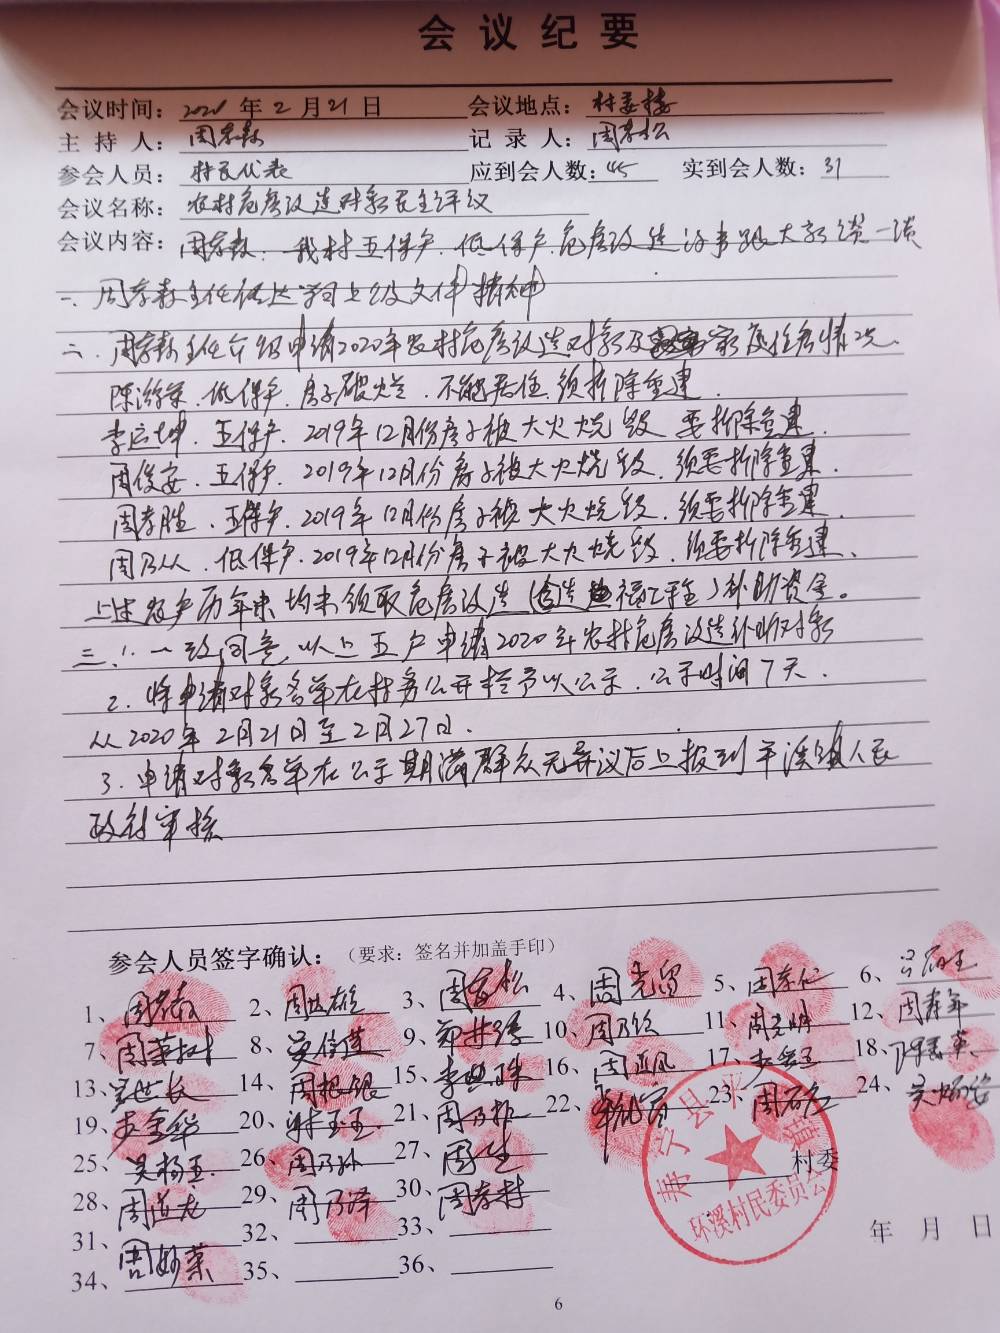 会议纪要
会议时间：2020年2月21日 会议地点：村委楼
主持人：周孝森 记录人：周孝松
参会人员：村民代表 应到会人数：45 实到会人数：31
会议名称：农村危房改造对象民主评议
会议内容：周孝森：我村五保户、低保户危房改造 大家谈一谈
一、周孝森主任传达学习上级文件精神
二、周孝森主任介绍申请2020年农村危房改造对象及家庭住房情况.
陈 荣、低保户、房子破烂、不能居住、须拆除重建.
李运坤、五保户、2019年12月份房子被大火烧毁 要拆除重建.
周俊安、五保户、2019年12月份房子被大火烧毁、须要拆除重建.
周孝胜、五保户、2019年12月份房子被大火烧毁、须要拆除重建.
周乃从、低保户、2019年12月份房子被大火烧毁、须要拆除重建、
上述农户历年来均未领取危房改造（造福工程）补助资金。
三、1、一致同意以上五户申请2020年农村危房改造补助对象
2、将申请对象名单在村务公开栏予以公示、公示时间7天.
从2020年2月21日至2月27日.
3、申请对象名单在公示期满群众无异议后上报到平溪镇人民
政府审核
参会人员签字确认：（要求：签名并加盖手印）
1、周孝森 2、周 雄 3、周孝松 4、周光留 5、周孝仁 6、
7、周 树 8、吴信莲 9、郑 10、周乃钦 11、周光明 12、周寿年
13、吴世长 14、周根银 15、李 16、周 凤 17、 18、陈 英
19、 金华 20、林玉玉 21、周乃 22、 23、周石 24、吴
25、吴杨玉 26、周乃 27、周 生
28、周道龙 29、周乃泽 30、周孝村
31、 32、 33、
34、周 菜 35、 36、
寿宁县平溪镇环溪村民委员会
村委
年 月 日
6